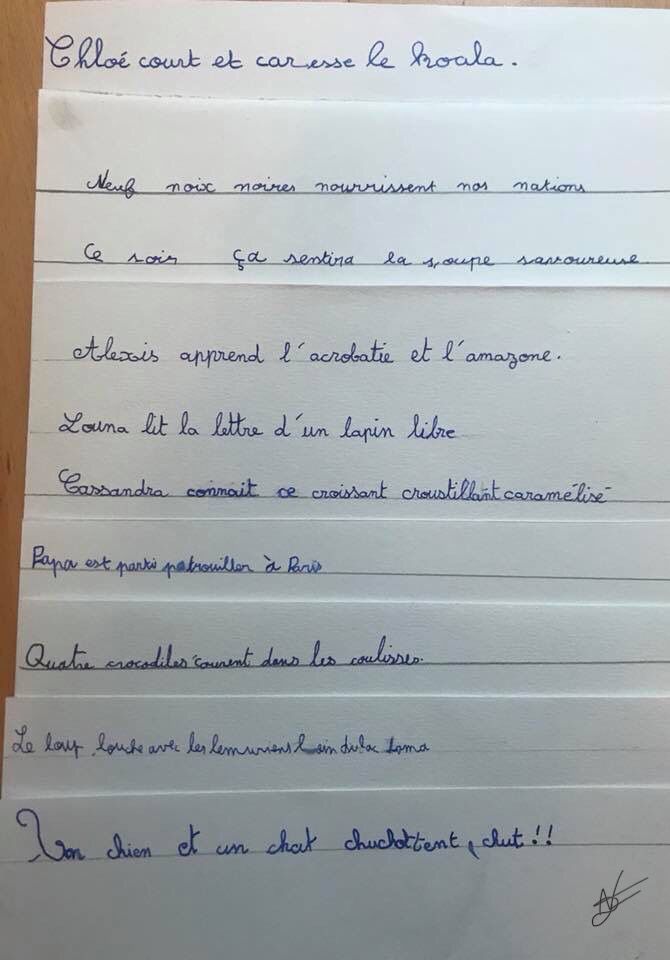 Chloé court et caresse le koala.
Neuf noix noires nourrissent nos nations
Ce soir ça sentira la soupe savoureuse
Alexis apprend l'acrobatie et l'amazone.
Louna lit la lettre d'un lapin libre
Cassandra connait ce croissant croustillant caramélisé
Papa est parti patrouiller à Paris
Quatre crocodiles courent dans les coulisses.
Le loup louche avec les lemuriens loin du lac
chien et un chat chuchottent, chut!!